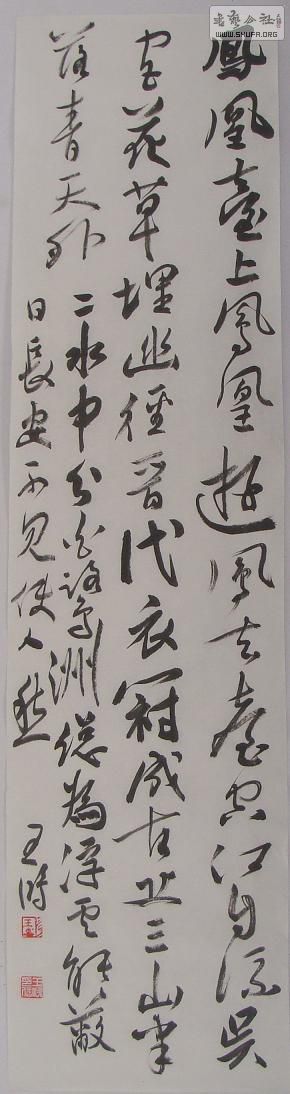 書藝公社
WWW.SHUFA.ORG
鳳凰臺上鳳凰遊鳳去臺空江自流吳
宮花草埋幽徑晉代衣冠成古丘三山半
落青天外二水中分白鷺洲總為浮雲能蔽
日長安不見使人愁
王時